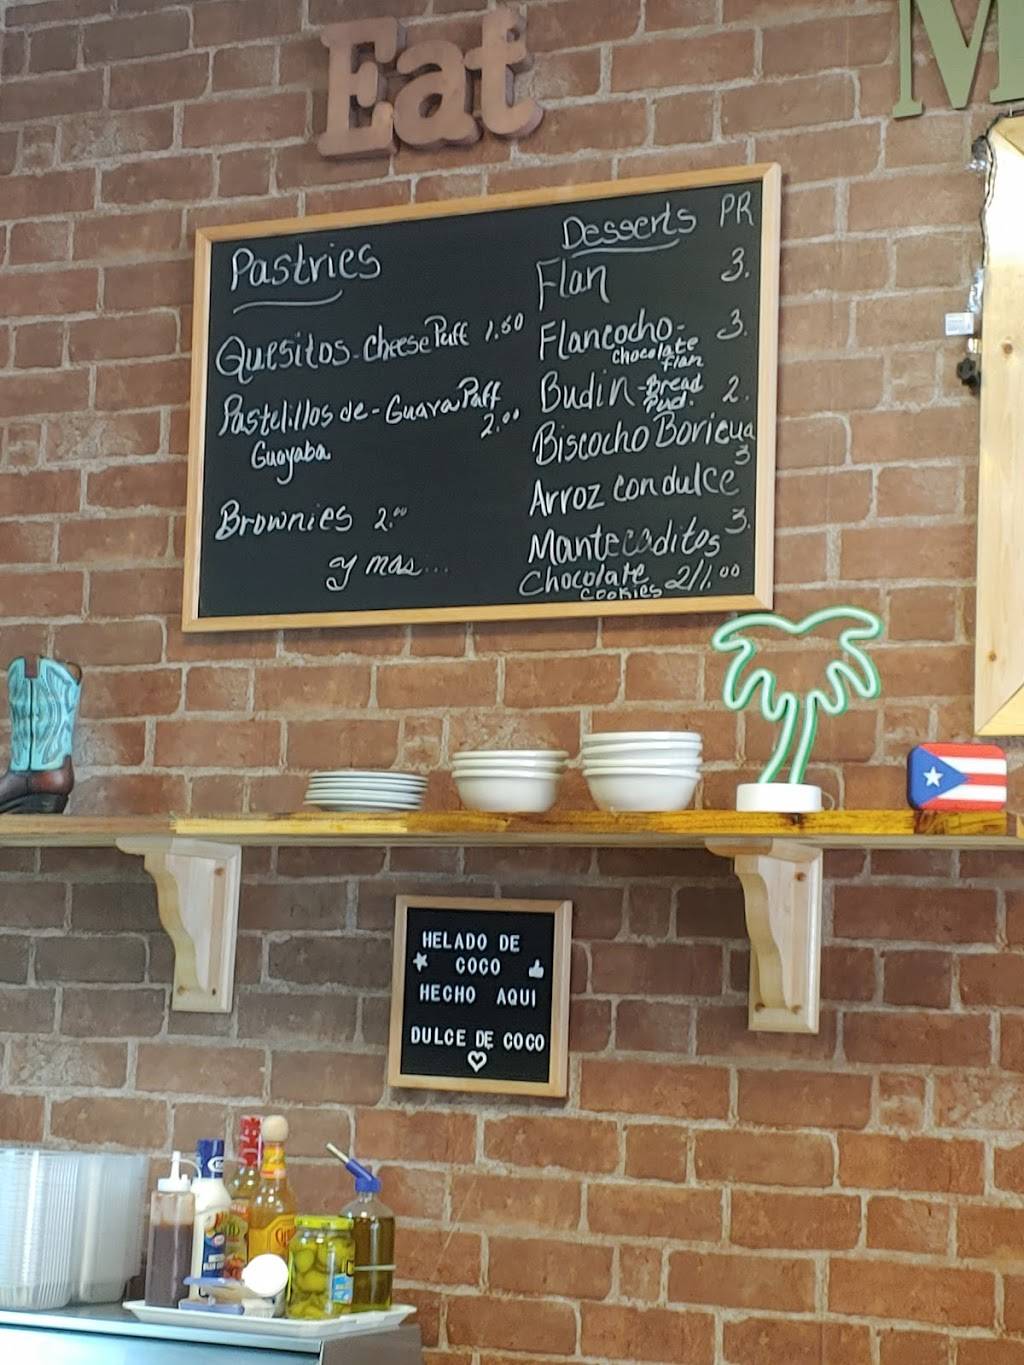 Eat
M
Pastries
Quesitos - Cheese Puff 1.50
Pastelillos de - Guava Puff
Guayaba 2.00
Brownies 2.00
y mas...
Desserts PR
Flan 3.
Flancocho - 3.
Chocolate
flan
Budin - Bread 2.
Pud.
Biscocho Boricua
3
Arroz con dulce
3.
Mantecaditos
Chocolate 2/1.00
Cookies
HELADO DE
COCO
HECHO AQUI
DULCE DE COCO